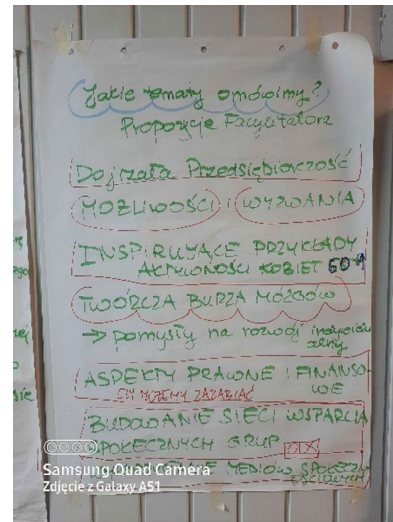 Jakie tematy omówimy?
Propozycje Facylitatora
Dojrzała Przedsiębiorczość
MOŻLIWOŚCI i WYZWANIA
INSPIRUJĄCE PRZYKŁADY
AKTYWNOŚCI KOBIET 60+
TWÓRCZA BURZA MÓZGÓW
→ pomysły na rozwój indywidu
alny
ASPEKTY PRAWNE I FINANSO-
WE
BUDOWANIE SIECI WSPARCIA
SPOŁECZNYCH GRUP
MEDIÓW SPOŁECZ
Samsung Quad Camera
Zdjęcie z Galaxy A51